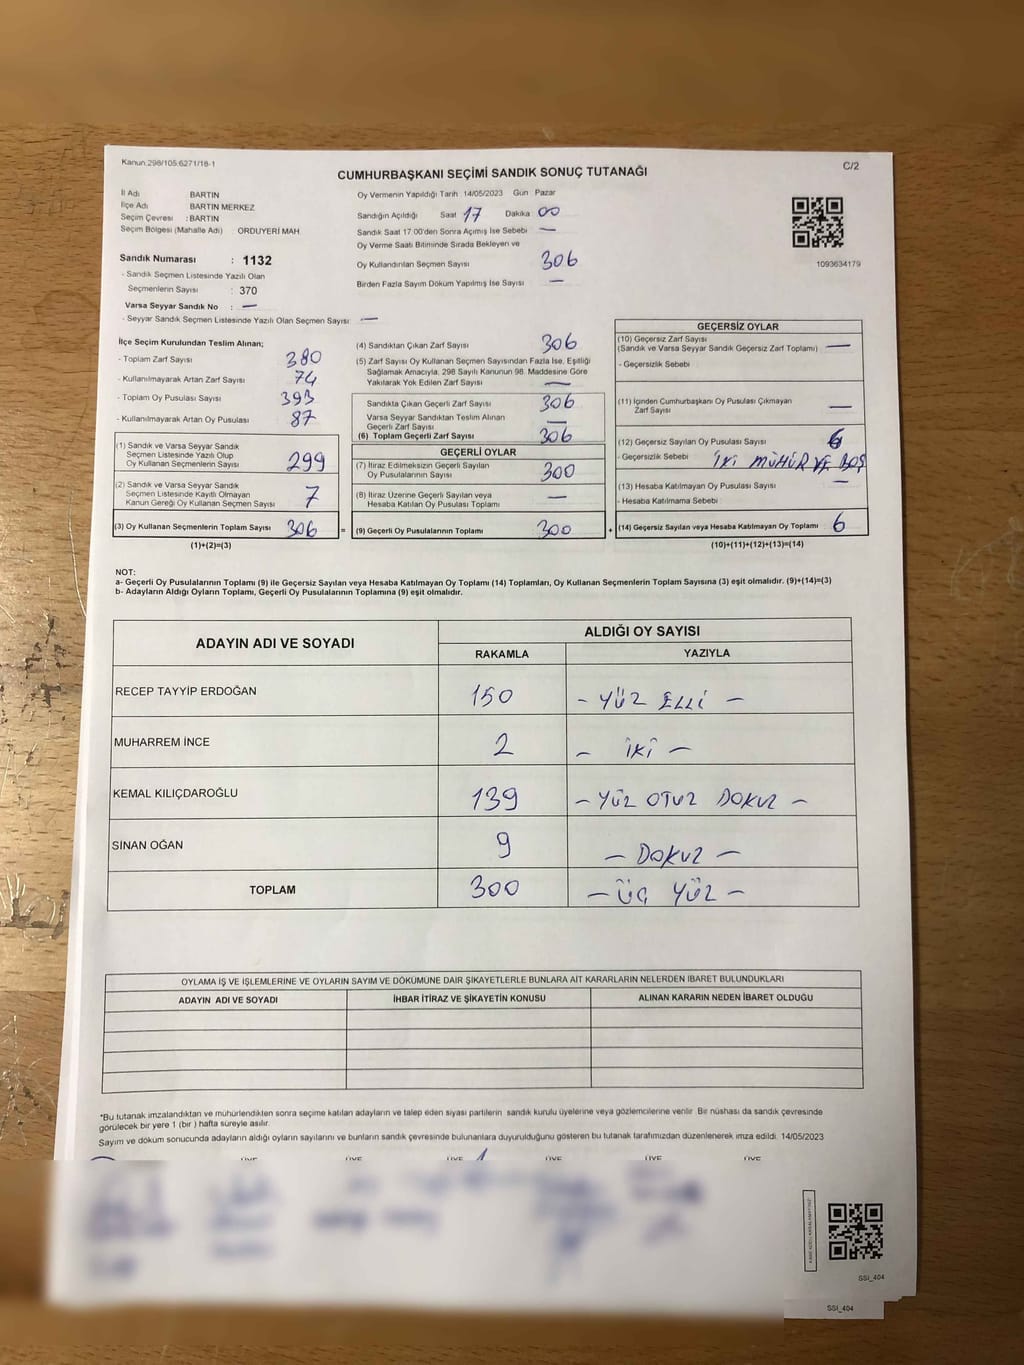 Kanun:298/105;6271/18-1
C/2
CUMHURBAŞKANI SEÇİMİ SANDIK SONUÇ TUTANAĞI
İl Adı BARTIN
İlçe Adı BARTIN MERKEZ
Seçim Çevresi : BARTIN
Seçim Bölgesi (Mahalle Adı) : ORDUYERİ MAH
Sandık Numarası : 1132
- Sandık Seçmen Listesinde Yazılı Olan
Seçmenlerin Sayısı : 370
Varsa Seyyar Sandık No : —
- Seyyar Sandık Seçmen Listesinde Yazılı Olan Seçmen Sayısı : —
Oy Vermenin Yapıldığı Tarih 14/05/2023 Gün Pazar
Sandığın Açıldığı Saat 17 Dakika 00
Sandık Saat 17.00'den Sonra Açımış İse Sebebi —
Oy Verme Saati Bitiminde Sırada Bekleyen ve
Oy Kullandırılan Seçmen Sayısı 306
Birden Fazla Sayım Döküm Yapılmış İse Sayısı —
1093634179
İlçe Seçim Kurulundan Teslim Alınan;
- Toplam Zarf Sayısı 380
- Kullanılmayarak Artan Zarf Sayısı 74
- Toplam Oy Pusulası Sayısı 393
- Kullanılmayarak Artan Oy Pusulası 87
(1) Sandık ve Varsa Seyyar Sandık
Seçmen Listesinde Yazılı Olup
Oy Kullanan Seçmenlerin Sayısı 299
(2) Sandık ve Varsa Seyyar Sandık
Seçmen Listesinde Kayıtlı Olmayan
Kanun Gereği Oy Kullanan Seçmen Sayısı 7
(3) Oy Kullanan Seçmenlerin Toplam Sayısı 306 =
(1)+(2)=(3)
(4) Sandıktan Çıkan Zarf Sayısı 306
(5) Zarf Sayısı Oy Kullanan Seçmen Sayısından Fazla İse, Eşitliği
Sağlamak Amacıyla, 298 Sayılı Kanunun 98. Maddesine Göre
Yakılarak Yok Edilen Zarf Sayısı —
Sandıkta Çıkan Geçerli Zarf Sayısı 306
Varsa Seyyar Sandıktan Teslim Alınan
Geçerli Zarf Sayısı —
(6) Toplam Geçerli Zarf Sayısı 306
GEÇERLİ OYLAR
(7) İtiraz Edilmeksizin Geçerli Sayılan
Oy Pusulalarının Sayısı 300
(8) İtiraz Üzerine Geçerli Sayılan veya
Hesaba Katılan Oy Pusulası Toplamı —
(9) Geçerli Oy Pusulalarının Toplamı 300 +
GEÇERSİZ OYLAR
(10) Geçersiz Zarf Sayısı
(Sandık ve Varsa Seyyar Sandık Geçersiz Zarf Toplamı) —
- Geçersizlik Sebebi
(11) İçinden Cumhurbaşkanı Oy Pusulası Çıkmayan
Zarf Sayısı —
(12) Geçersiz Sayılan Oy Pusulası Sayısı 6
- Geçersizlik Sebebi İKİ MÜHÜR VE BOŞ
(13) Hesaba Katılmayan Oy Pusulası Sayısı —
- Hesaba Katılmama Sebebi
(14) Geçersiz Sayılan veya Hesaba Katılmayan Oy Toplamı 6
(10)+(11)+(12)+(13)=(14)
NOT:
a- Geçerli Oy Pusulalarının Toplamı (9) ile Geçersiz Sayılan veya Hesaba Katılmayan Oy Toplamı (14) Toplamları, Oy Kullanan Seçmenlerin Toplam Sayısına (3) eşit olmalıdır. (9)+(14)=(3)
b- Adayların Aldığı Oyların Toplamı, Geçerli Oy Pusulalarının Toplamına (9) eşit olmalıdır.
ADAYIN ADI VE SOYADI ALDIĞI OY SAYISI
RAKAMLA YAZIYLA
RECEP TAYYİP ERDOĞAN 150 - YÜZ ELLİ -
MUHARREM İNCE 2 - İKİ -
KEMAL KILIÇDAROĞLU 139 - YÜZ OTUZ DOKUZ -
SİNAN OĞAN 9 - DOKUZ -
TOPLAM 300 - ÜÇ YÜZ -
OYLAMA İŞ VE İŞLEMLERİNE VE OYLARIN SAYIM VE DÖKÜMÜNE DAİR ŞİKAYETLERLE BUNLARA AİT KARARLARIN NELERDEN İBARET BULUNDUKLARI
ADAYIN ADI VE SOYADI İHBAR İTİRAZ VE ŞİKAYETİN KONUSU ALINAN KARARIN NEDEN İBARET OLDUĞU
*Bu tutanak imzalandıktan ve mühürlendikten sonra seçime katılan adayların ve talep eden siyasi partilerin sandık kurulu üyelerine veya gözlemcilerine verilir. Bir nüshası da sandık çevresinde
görülecek bir yere 1 (bir ) hafta süreyle asılır.
Sayım ve döküm sonucunda adayların aldığı oyların sayılarını ve bunların sandık çevresinde bulunanlara duyurulduğunu gösteren bu tutanak tarafımızdan düzenlenerek imza edildi. 14/05/2023
ÜYE ÜYE ÜYE ÜYE ÜYE ÜYE
SSI_404
SSI_404